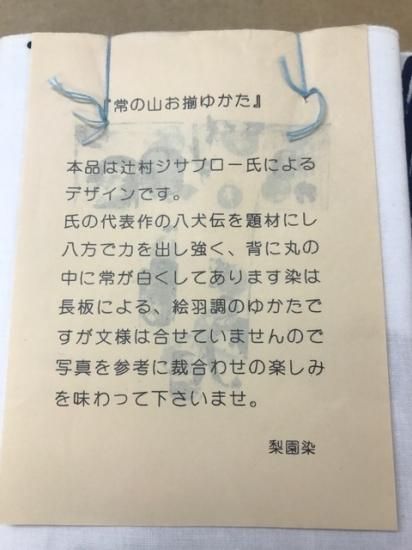 『常の山お揃ゆかた』
本品は辻村ジサブロー氏による
デザインです。
氏の代表作の八犬伝を題材にし
八方で力を出し強く、背に丸の
中に常が白くしてあります染は
長板による、絵羽調のゆかたで
すが文様は合せていませんので
写真を参考に裁合わせの楽しみ
を味わって下さいませ。
梨園染